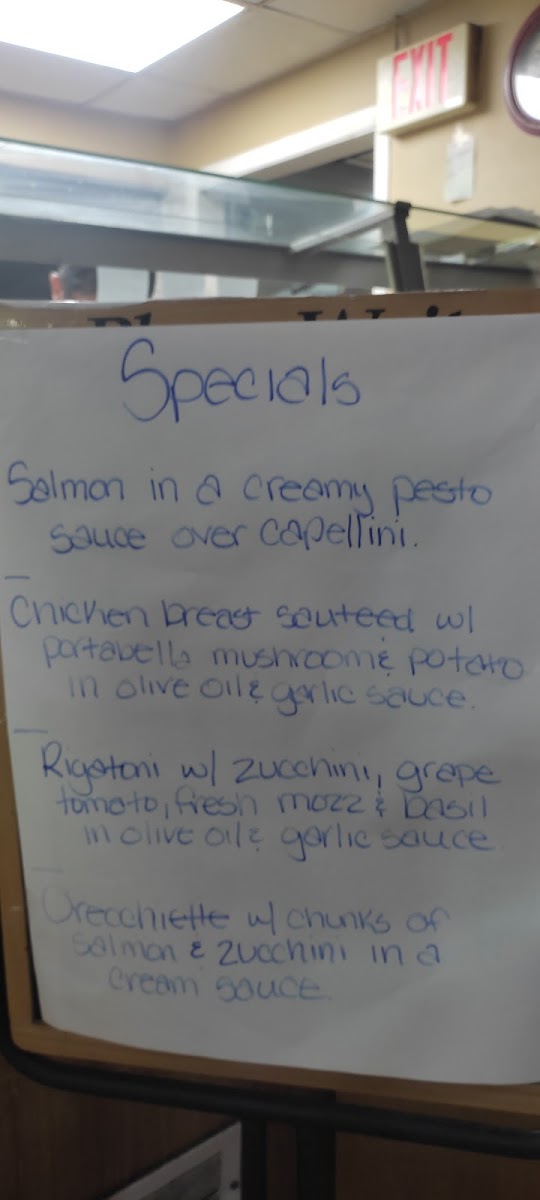 EXIT
Specials
Salmon in a creamy pesto
sauce over capellini.
Chicken breast sauteed w/
portabella mushroom & potato
in olive oil & garlic sauce.
Rigatoni w/ zucchini, grape
tomato, fresh mozz & basil
in olive oil & garlic sauce
Orecchiette w/ chunks of
salmon & zucchini in a
cream sauce.